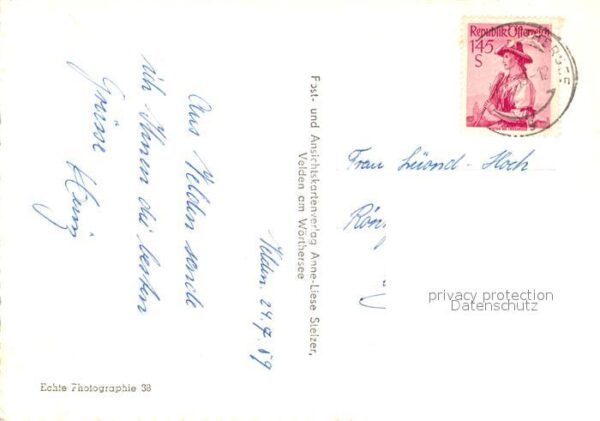 Republik Österreich
145
S
Aus Velden sende
ich Ihnen die besten
Grüsse
Velden, 24.9.59
Post- und Ansichtskartenverlag Anne-Liese Stelzer,
Velden am Wörthersee
Frau Hoch
Rön
privacy protection
Datenschutz
Echte Photographie 38